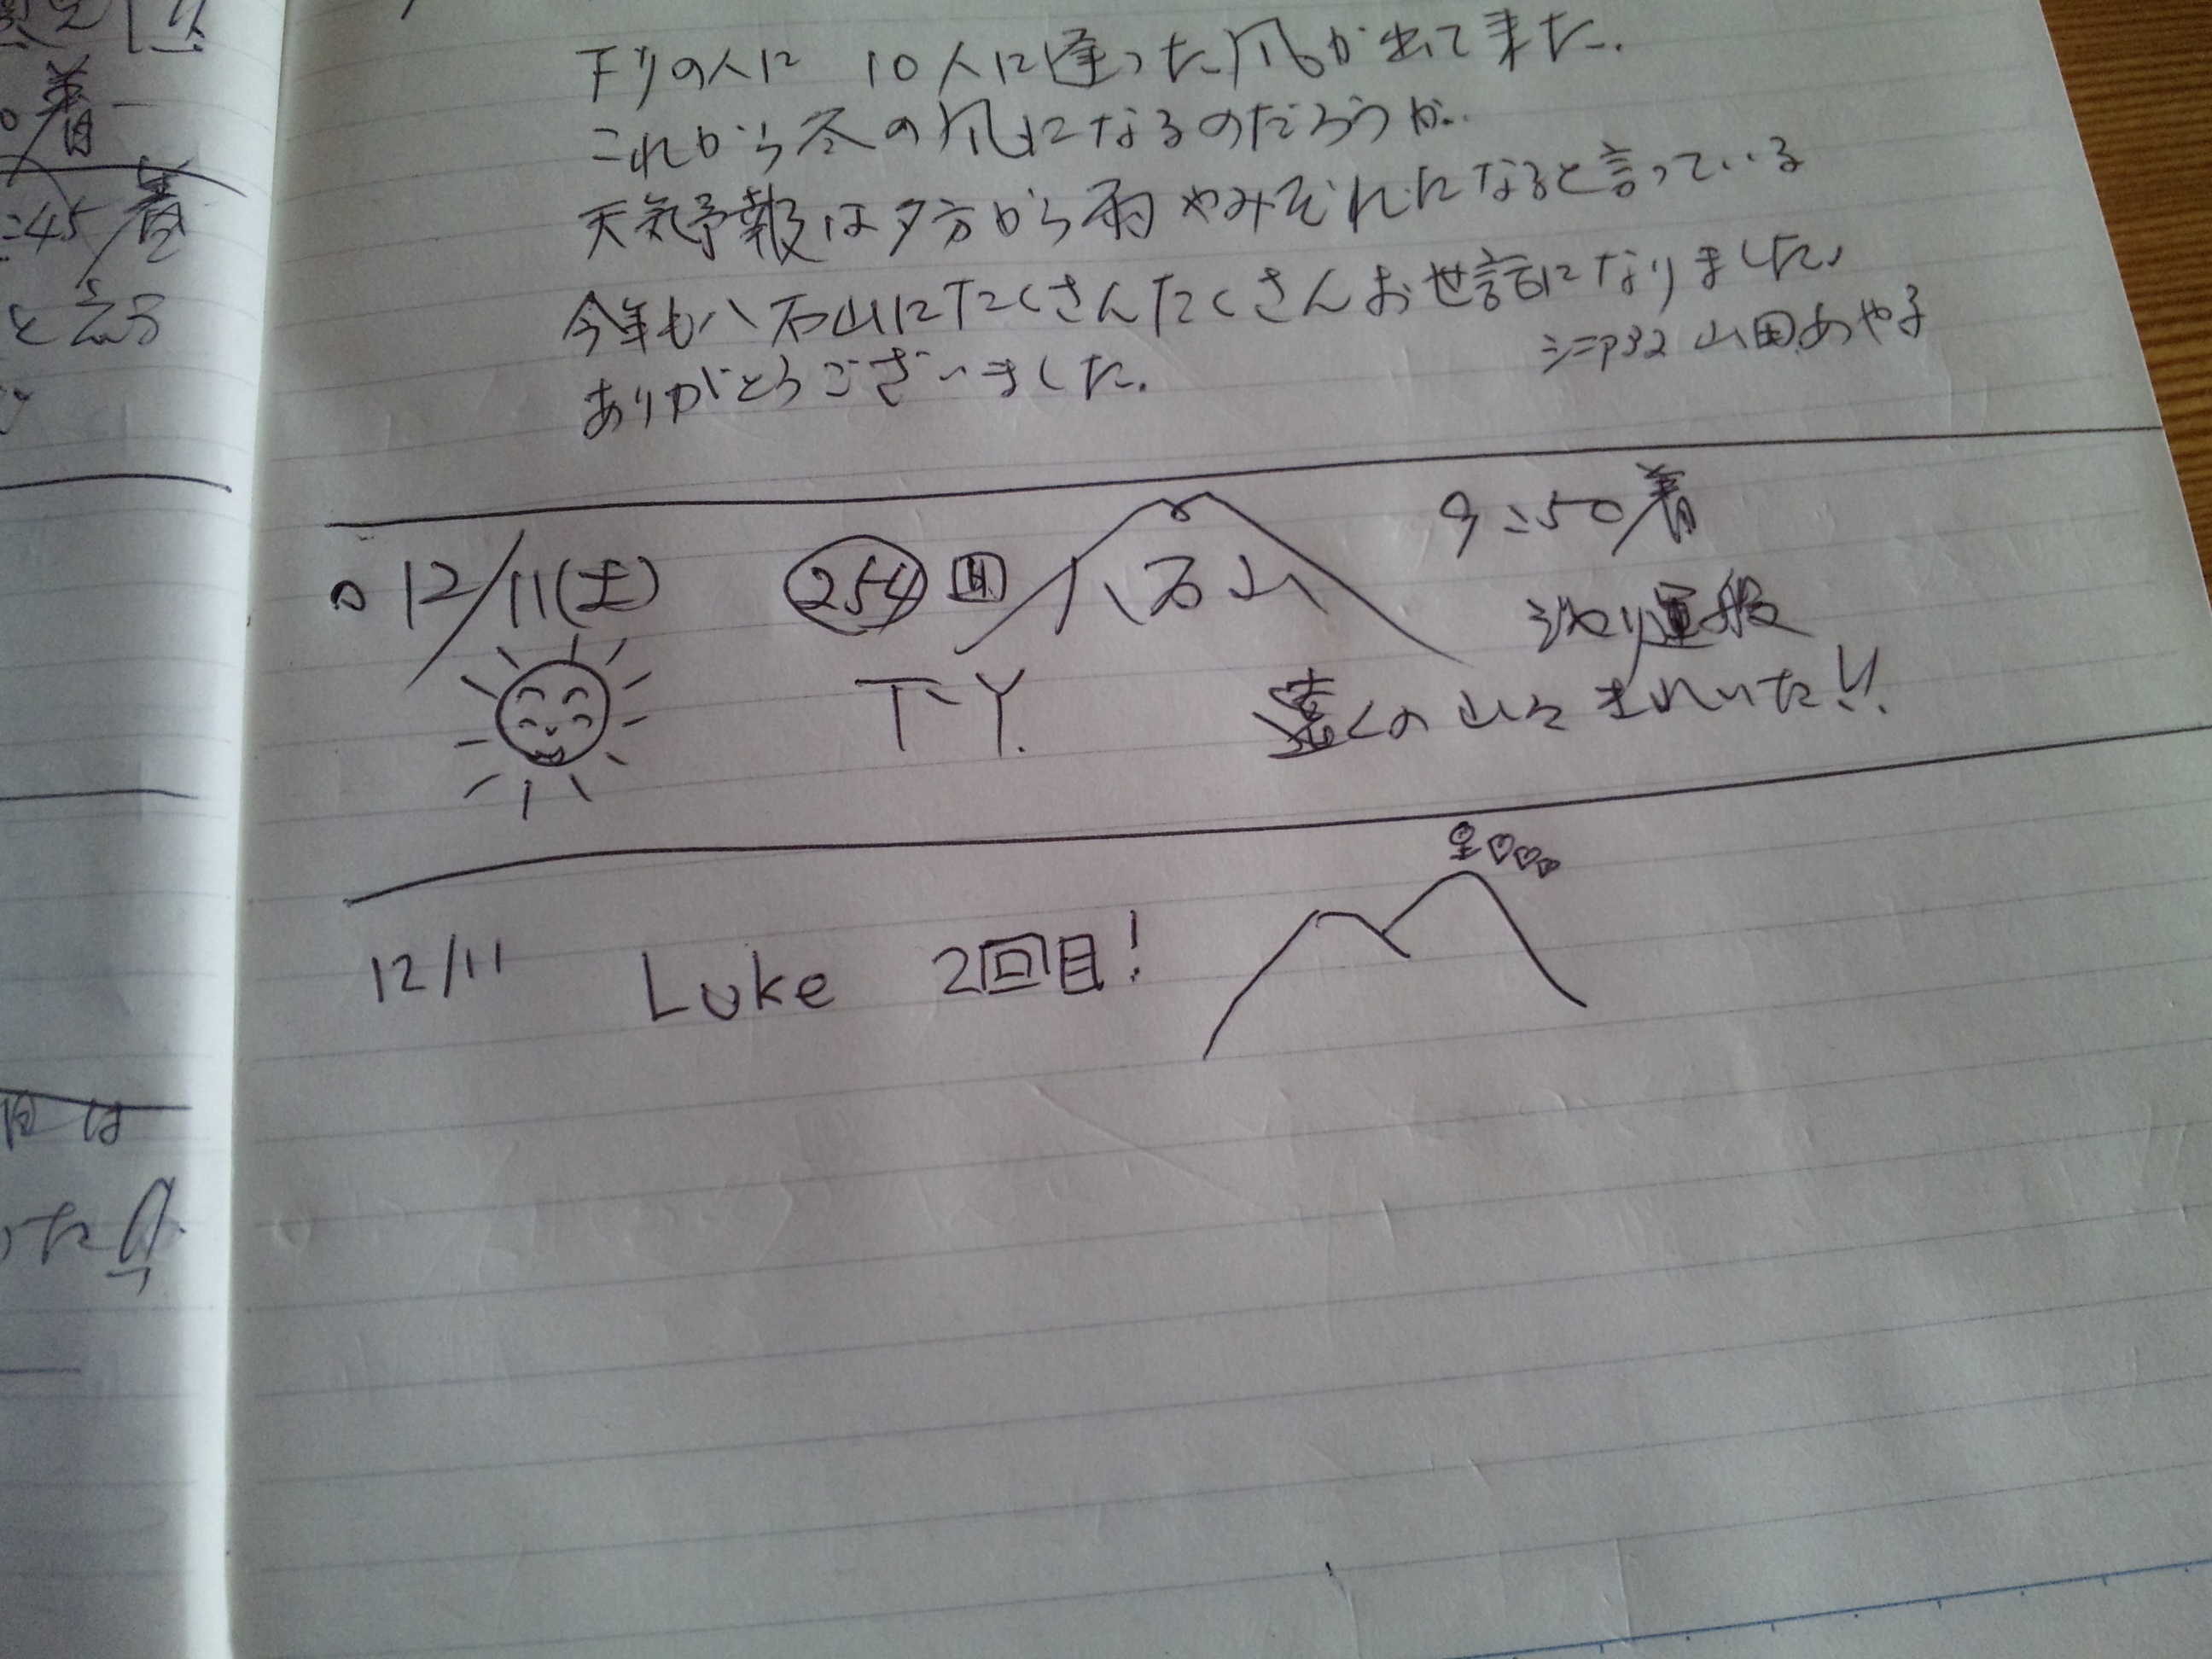 下りの人に 10人に逢った風が出て来た.
これから冬の風になるのだろうか.
天気予報は夕方から雨やみぞれになると言っている
今年も八石山にたくさんたくさんお世話になりました.
ありがとうございました.
シニア32 山田あや子
9:50着
12/11(土) 254回 八石山
じゃり運搬
T-Y. 遠くの山々きれいだ!!
12/11 Luke 2回目!
着
:45 着
と言う
は
った